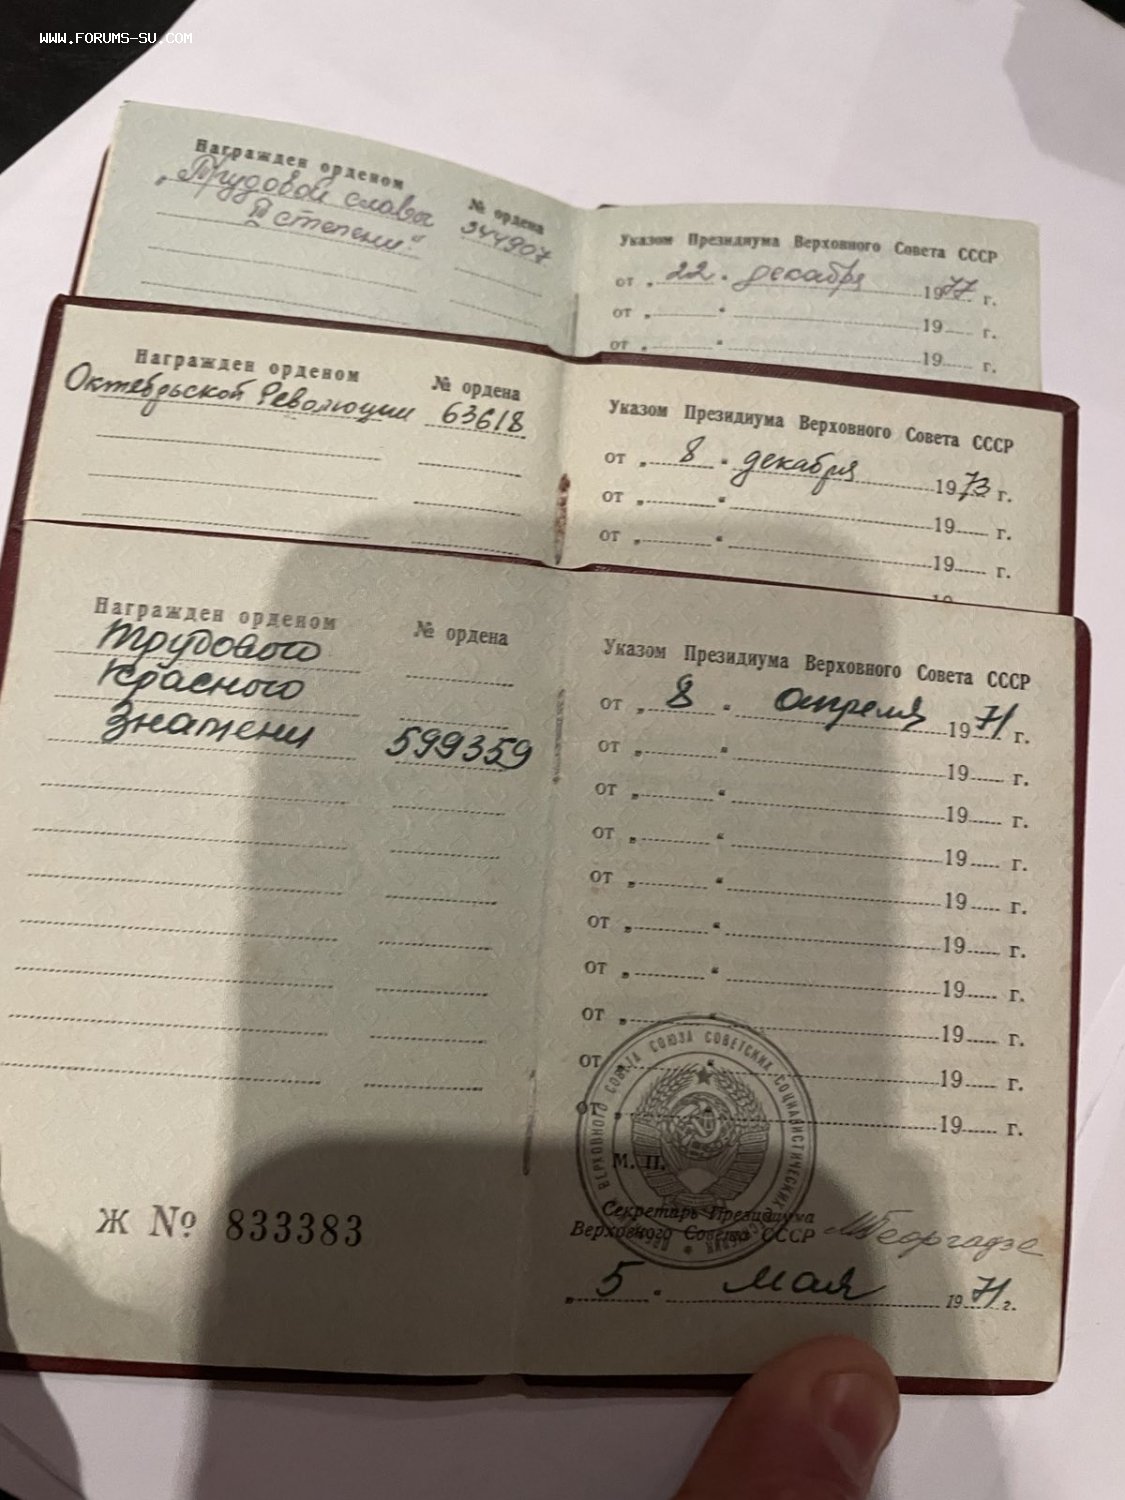 WWW.FORUMS-SU.COM
Награжден орденом
№ ордена
„Трудовой славы
степени“
344907
Указом Президиума Верховного Совета СССР
от „ 22 “ декабря 1977 г.
от „ “ 19 г.
от „ “ 19 г.
Награжден орденом
№ ордена
Октябрьской Революции 63618
Указом Президиума Верховного Совета СССР
от „ 8 “ декабря 1973 г.
от „ “ 19 г.
от „ “ 19 г.
19
Награжден орденом
№ ордена
Трудового
Красного
Знамени 599359
Указом Президиума Верховного Совета СССР
от „ 8 “ апреля 1971 г.
от „ “ 19 г.
от „ “ 19 г.
от „ “ 19 г.
от „ “ 19 г.
от „ “ 19 г.
от „ “ 19 г.
от „ “ 19 г.
от „ “ 19 г.
от „ “ 19 г.
ВЕРХОВНОГО СОВЕТА СОЮЗА СОВЕТСКИХ СОЦИАЛИСТИЧЕСКИХ
М. П.
Секретарь Президиума
Верховного Совета СССР
МГеоргадзе
Ж № 833383
„ 5 “ мая 1971 г.